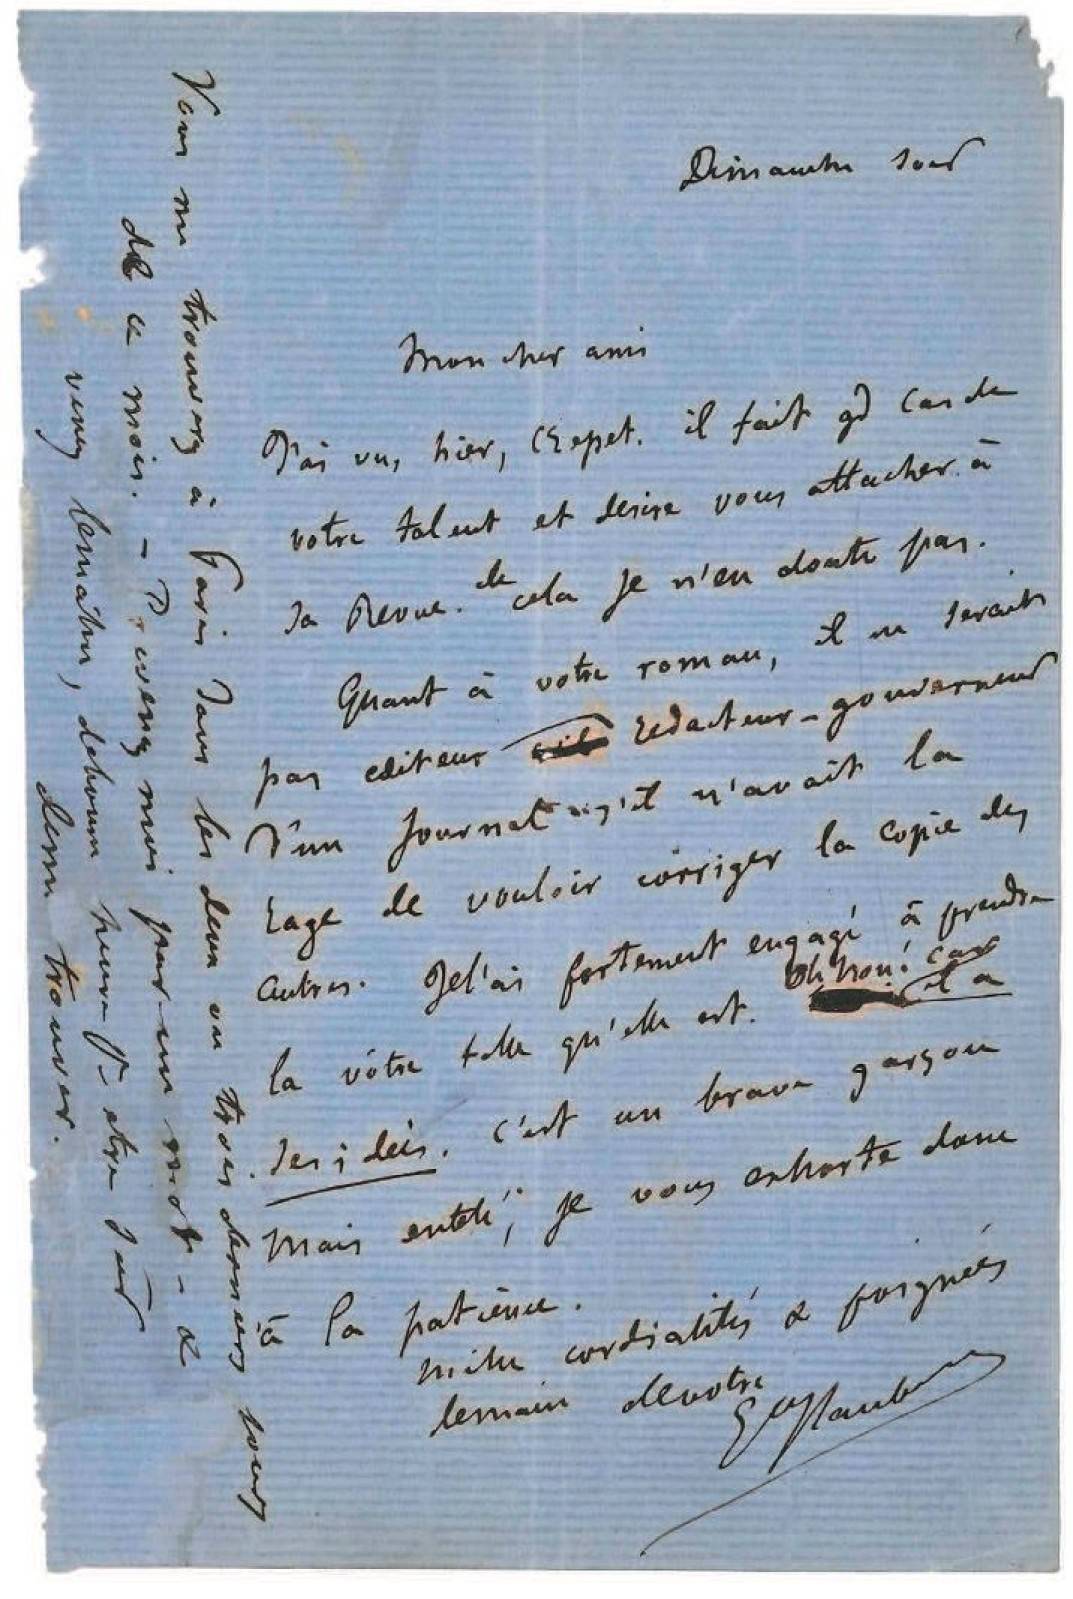 Dimanche soir
Mon cher ami
J'ai vu, hier, Crepet. il fait gd cas de
votre talent et desire vous attacher à
sa Revue. de cela je n'en doute pas.
Quant à votre roman, il ne serait
pas editeur redacteur-gouverneur
d'un Journal s'il n'avait la
rage de vouloir corriger la copie des
autres. Je l'ai fortement engagé à prendre
la vôtre telle qu'elle est. Oh non! car
il a
ses idées. c'est un brave garçon
mais entêté; je vous exhorte donc
à la patience.
mille cordialités & poignées
de main de votre
GveFlaubert
Vous me trouverez à Paris dans les deux ou trois derniers jours
de ce mois. - Prevenez moi par un mot - &
venez le matin, de bonne heure pr être sûr
de me trouver.